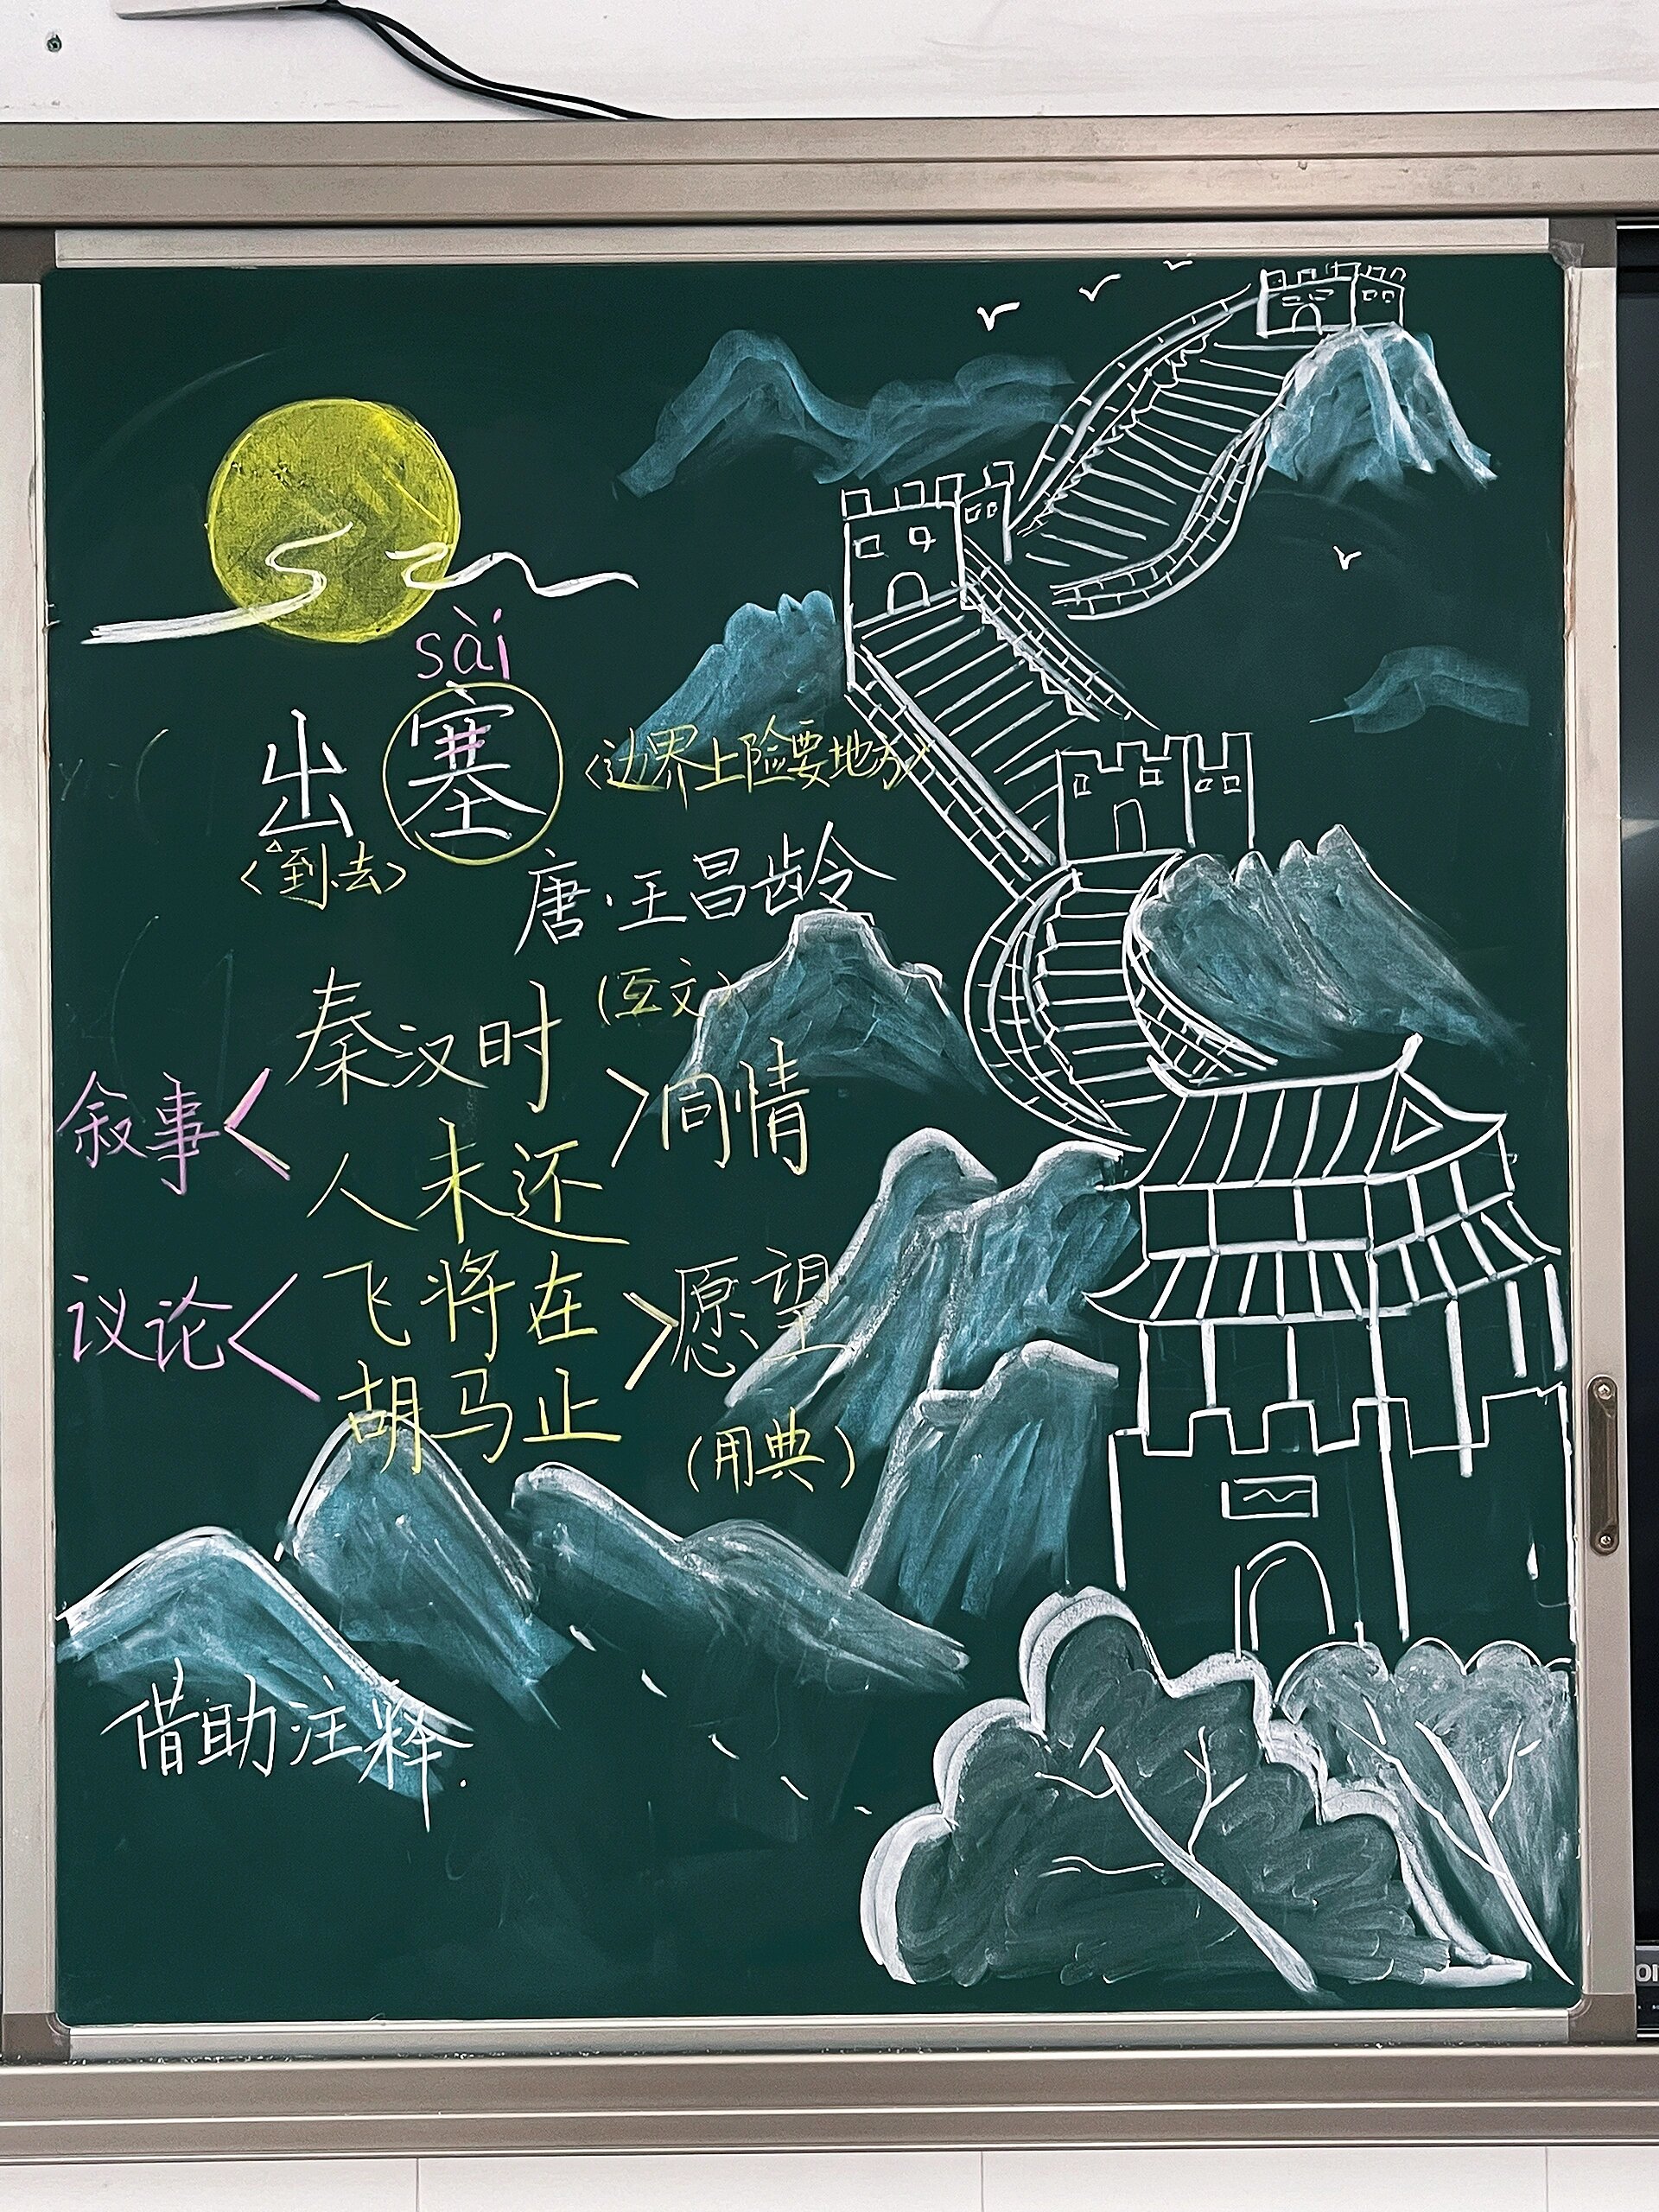 sài
出塞〈边界上险要地方〉
〈到去〉
唐·王昌龄
秦汉时（互文）
叙事 同情
人未还
飞将在
议论 愿望
胡马止
（用典）
借助注释.